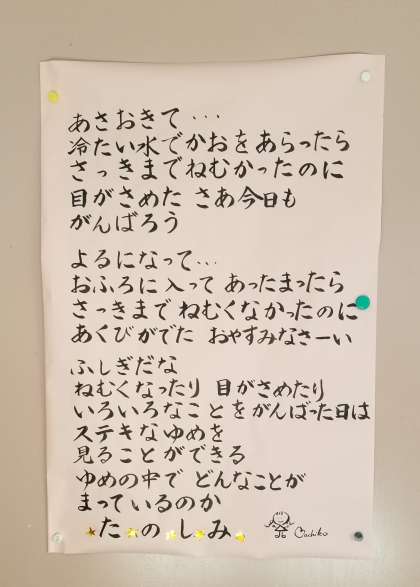 あさおきて・・・
冷たい水でかおをあらったら
さっきまでねむかったのに
目がさめた さあ今日も
がんばろう
よるになって・・・
おふろに入って あったまったら
さっきまでねむくなかったのに
あくびがでた おやすみなさーい
ふしぎだな
ねむくなったり 目がさめたり
いろいろなことをがんばった日は
ステキなゆめを
見ることができる
ゆめの中で どんなことが
まっているのか
たのしみ